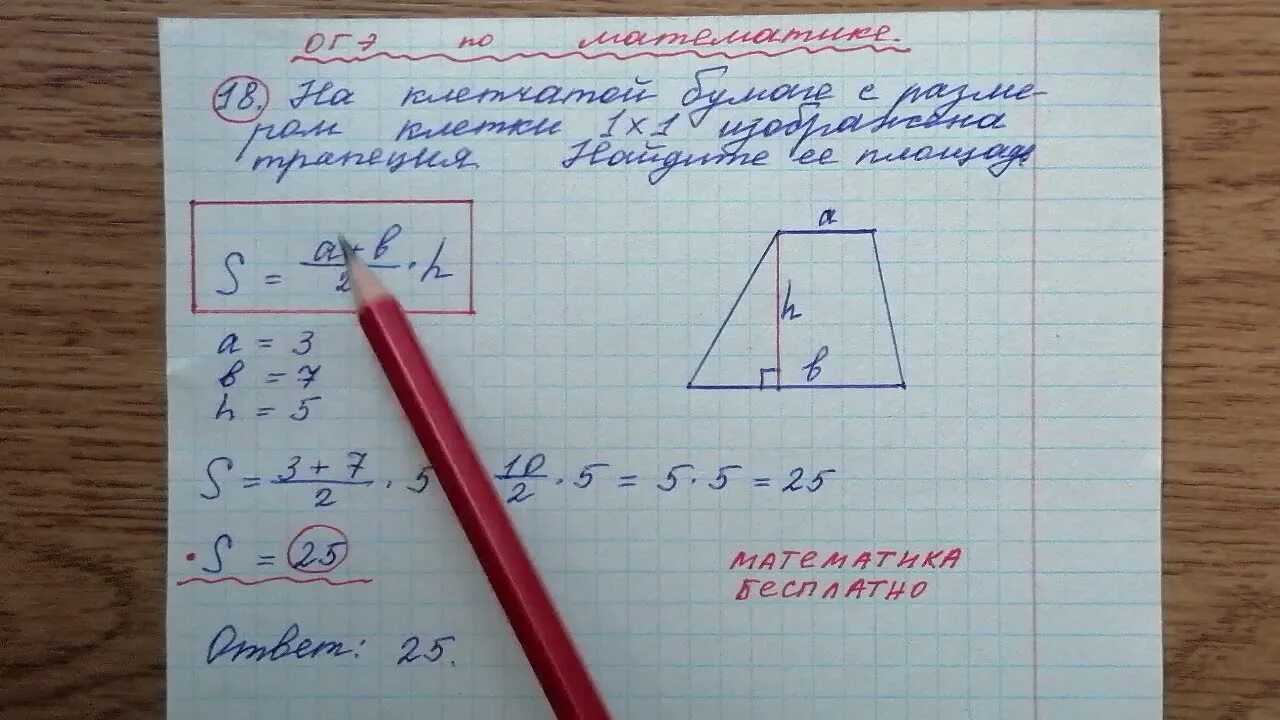 ОГЭ по математике.
18. На клетчатой бумаге с разме-
ром клетки 1×1 изображена
трапеция. Найдите ее площадь
S = (a + b)/2 · h
a = 3
b = 7
h = 5
a
h
b
S = (3 + 7)/2 · 5 10/2 · 5 = 5 · 5 = 25
• S = 25
МАТЕМАТИКА
БЕСПЛАТНО
Ответ: 25.